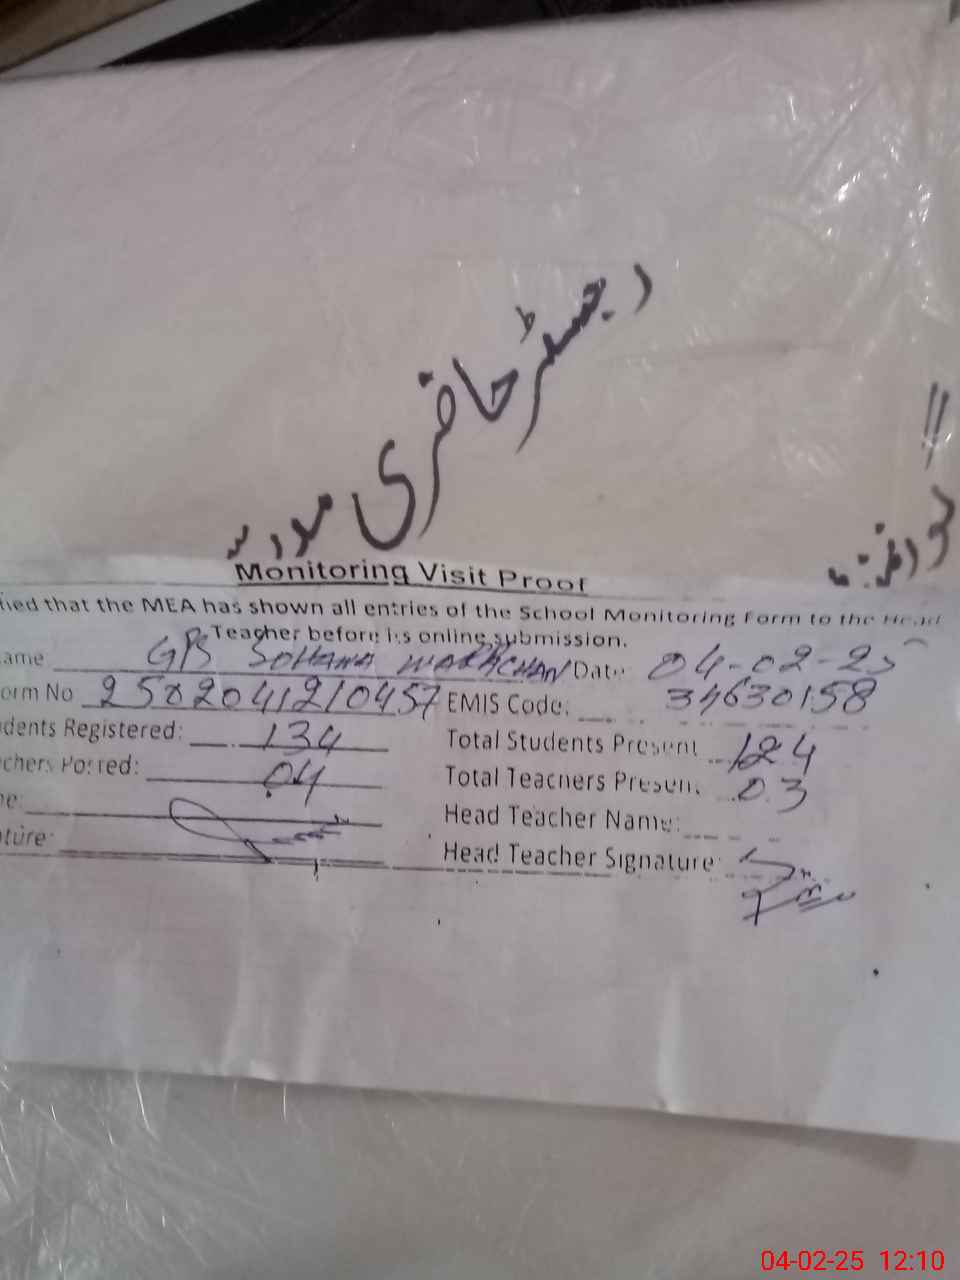 رجسٹر حاضری مدرسہ
Monitoring Visit Proof
fied that the MEA has shown all entries of the School Monitoring Form to the Head
Teacher before its online submission.
ame GPS SOHAWA WARACHAN Date 04-02-25
orm No 25020412 10457 EMIS Code: 34630158
dents Registered: 134 Total Students Present 124
chers Posted: 04 Total Teachers Present 03
me: Head Teacher Name:
ature: Head Teacher Signature:
04-02-25 12:10